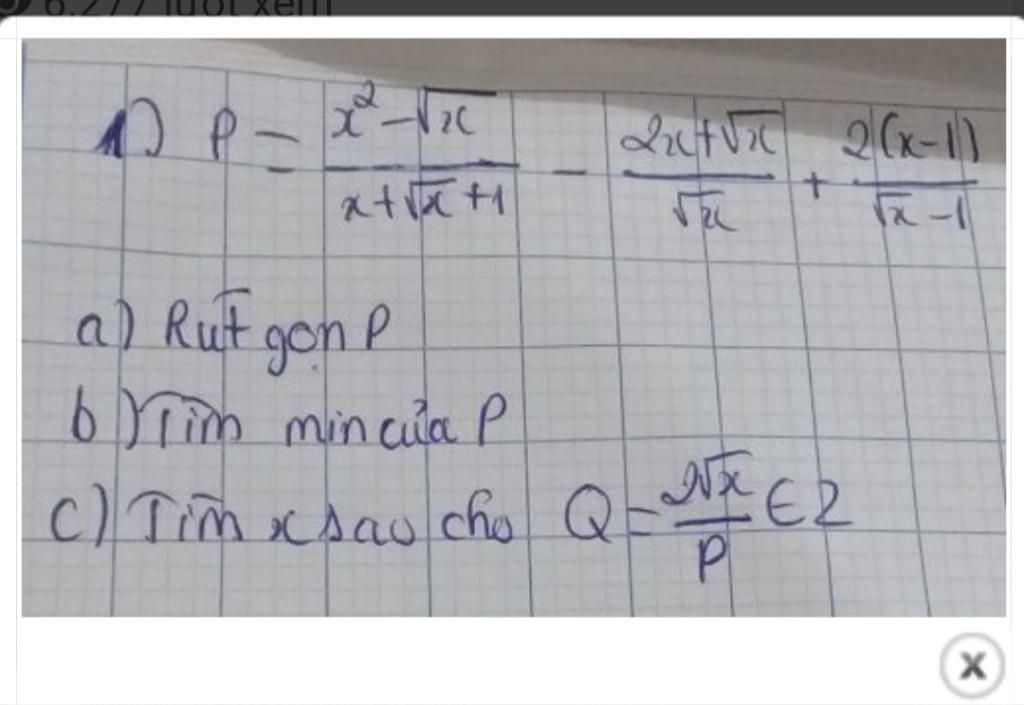 6.277 lượt xem
1) P = \frac{x^2-\sqrt{x}}{x+\sqrt{x}+1} - \frac{2x+\sqrt{x}}{\sqrt{x}} + \frac{2(x-1)}{\sqrt{x}-1}
a) Rút gọn P
b) Tìm min của P
c) Tìm x sao cho Q = \frac{2\sqrt{x}}{P} ∈ Z
X